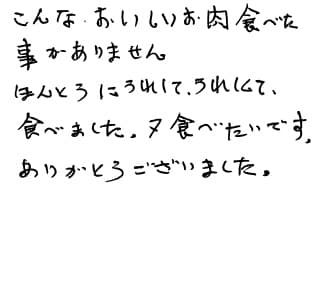 こんな おいしいお肉食べた
事がありません
ほんとうにうれして、うれしくて、
食べました。又食べたいです。
ありがとうございました。